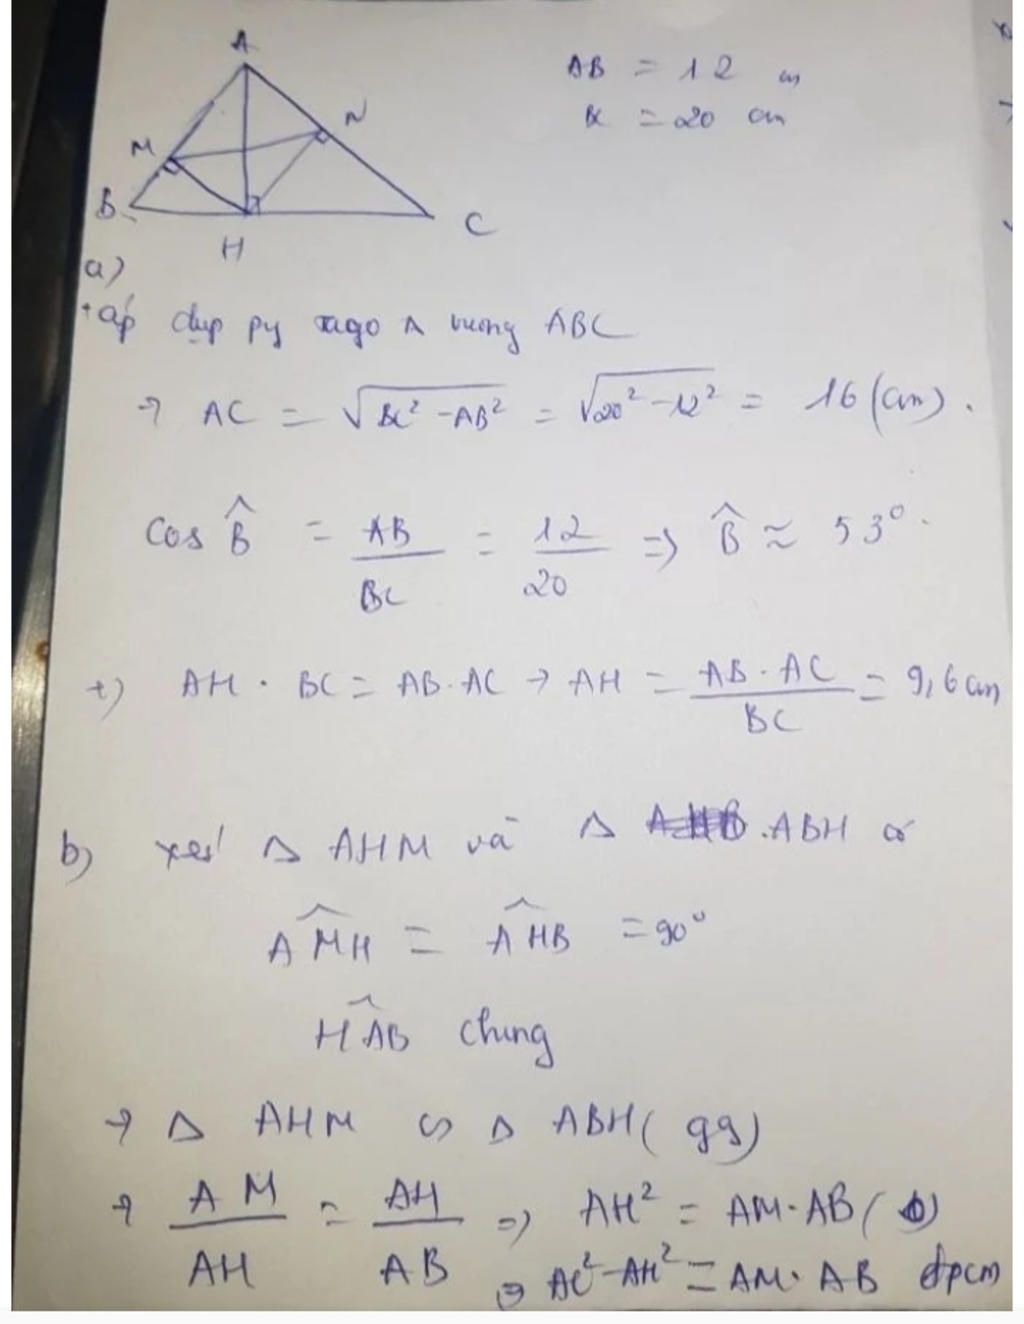 A
N
M
B
H
C
AB = 12 cm
BC = 20 cm
a)
+ áp dụp py tago Δ vuong ABC
→ AC = √(BC² - AB²) = √(20² - 12²) = 16 (cm).
Cos B̂ = AB/BC = 12/20 ⇒ B̂ ≈ 53°.
+) AH . BC = AB . AC → AH = AB . AC/BC = 9,6 cm
b) xét Δ AHM và Δ ABH có
AMH = AHB = 90°
HAB chung
→ Δ AHM ∽ Δ ABH (gg)
→ AM/AH = AH/AB ⇒ AH² = AM . AB (1)
⇒ AC² - AH² = AM . AB đpcm